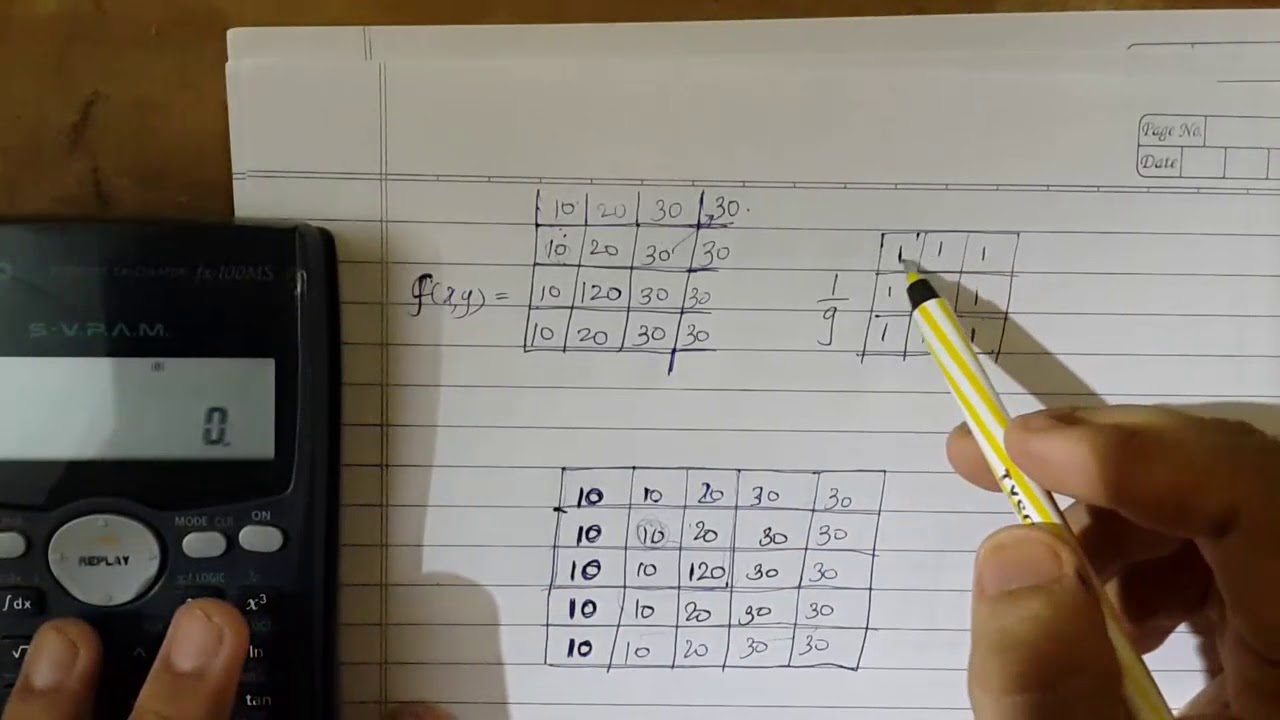 Page No.
Date
10 20 30 30
10 20 30 30
f(x,y) = 10 120 30 30
10 20 30 30
1/9
1 1 1
1 1
1 1
fx-100MS
S-V.P.A.M.
0.
MODE CLR ON
REPLAY
x³
∫dx
ln
tan
10 10 20 30 30
10 10 20 30 30
10 10 120 30 30
10 10 20 30 30
10 10 20 30 30